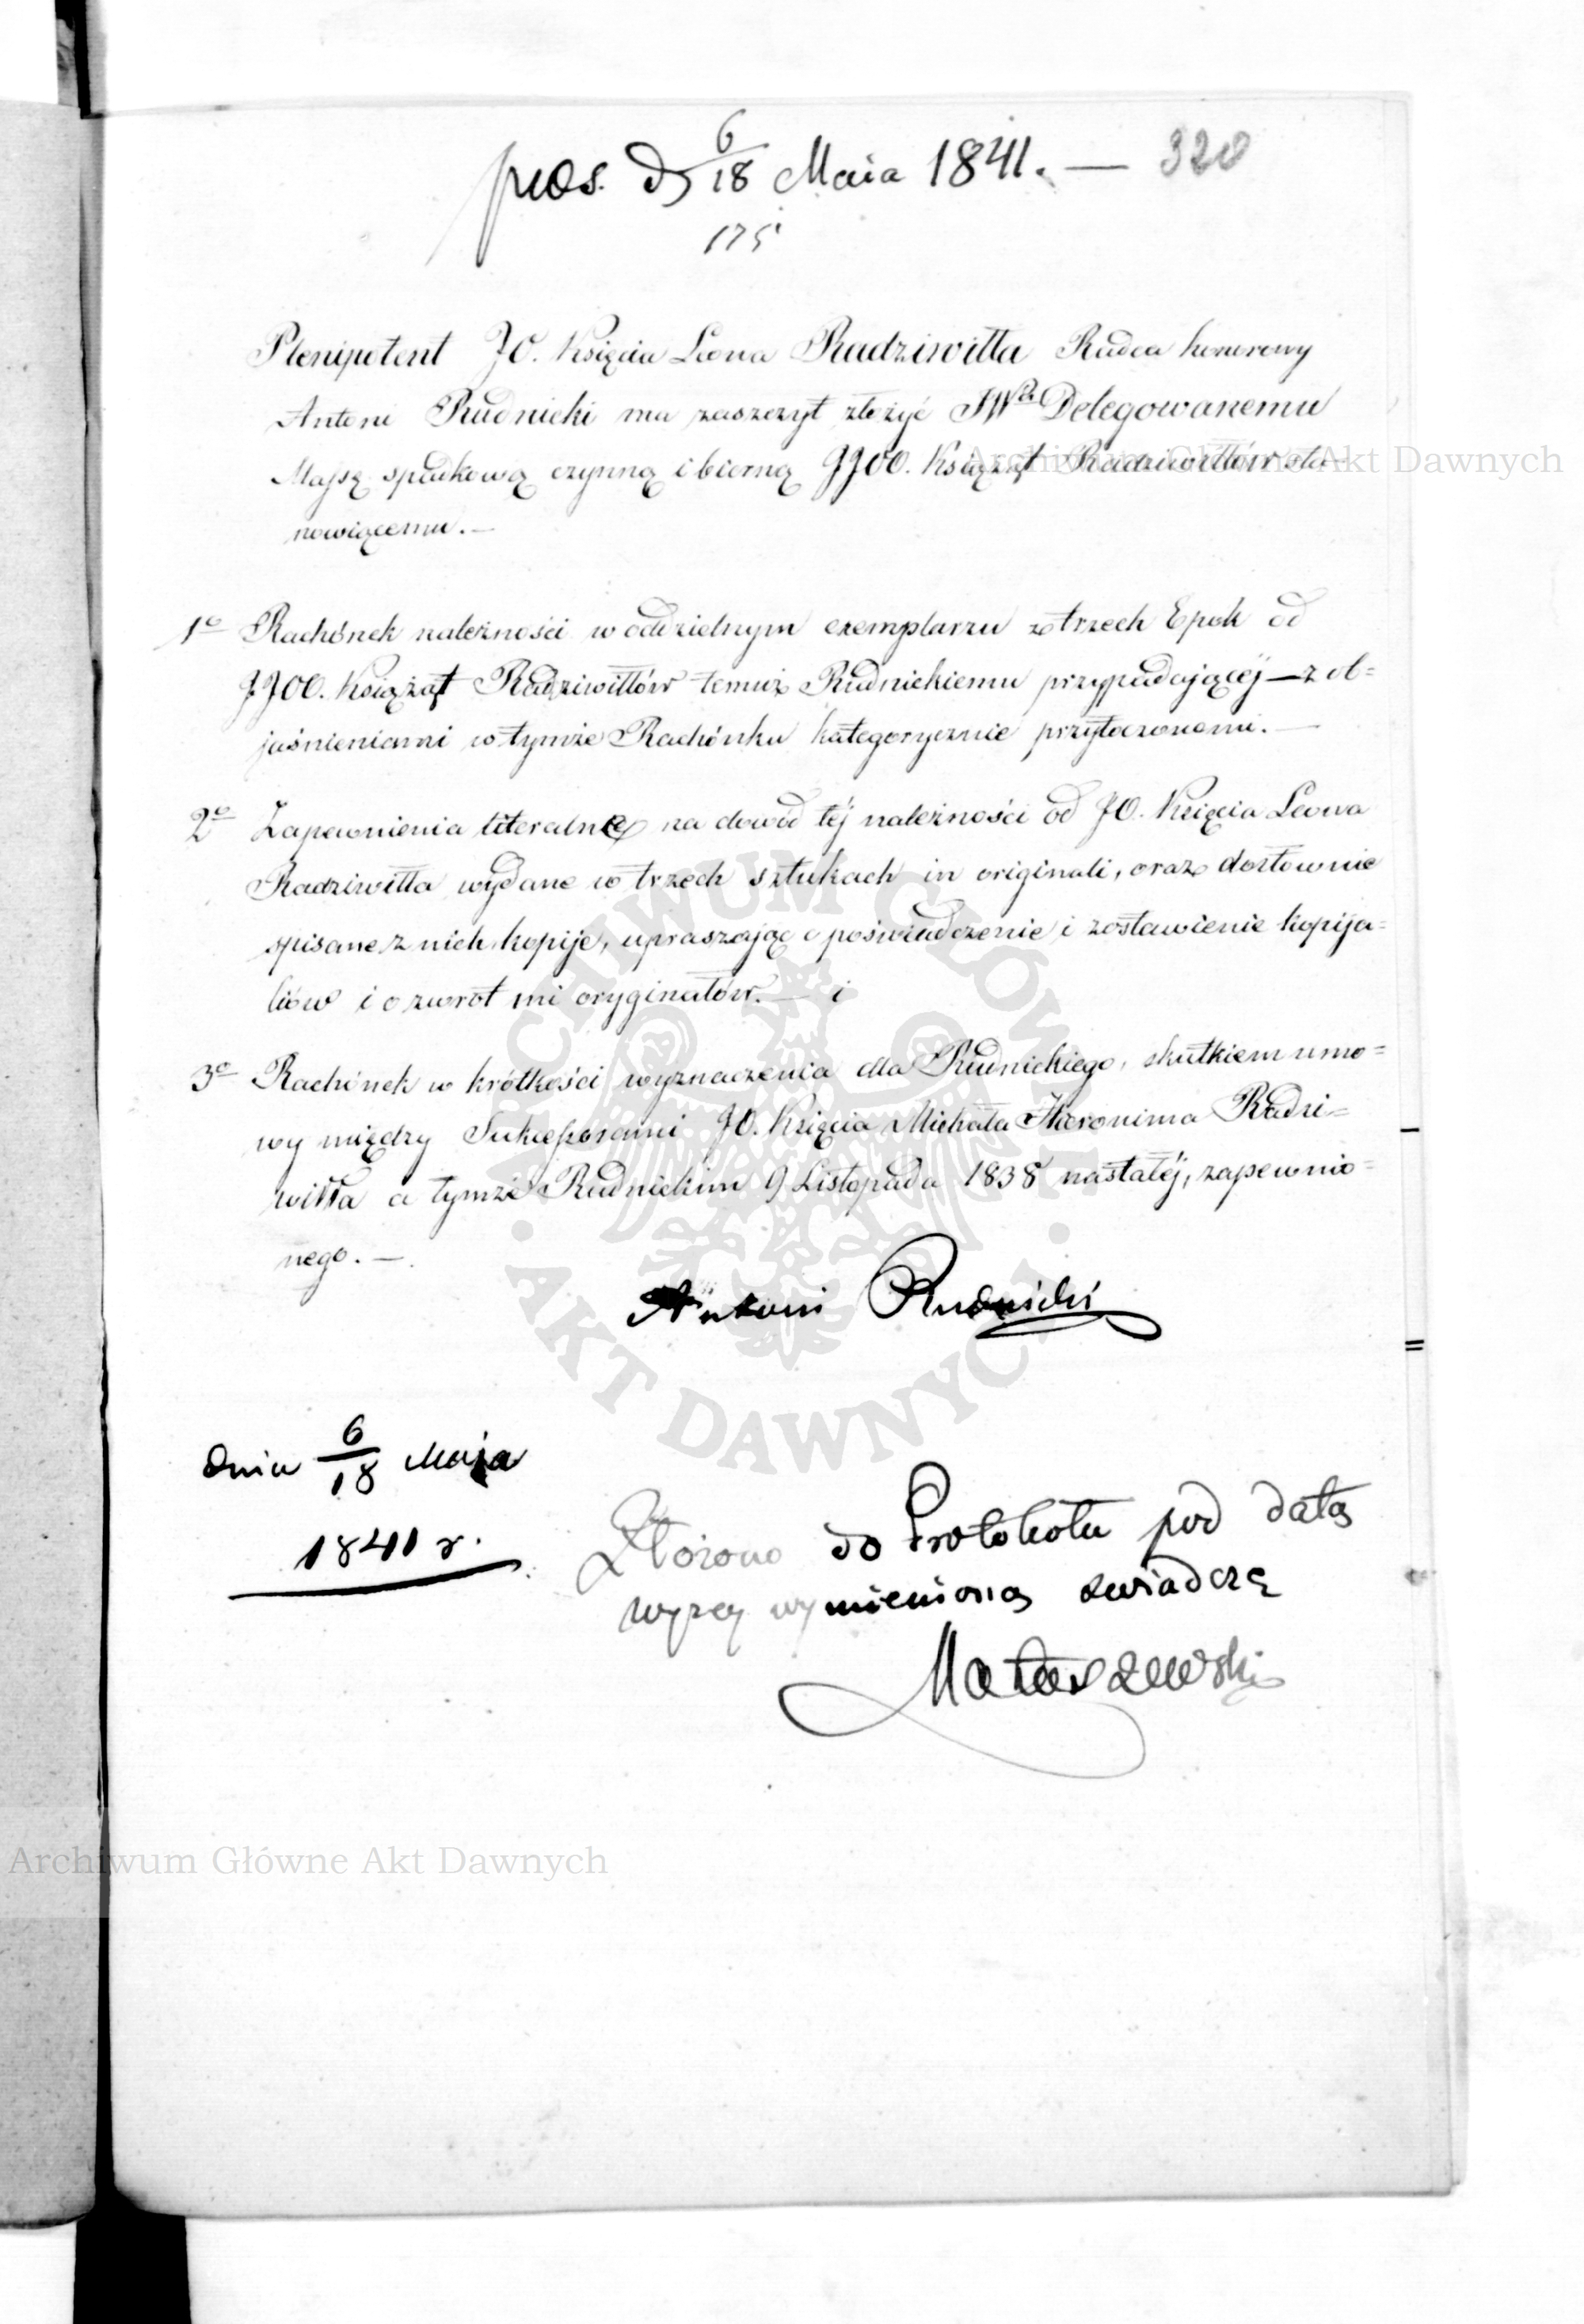 pros. d. 6/18 Maia 1841. — 320
175
Plenipotent JO. Księcia Leona Radziwiłła Radca honorowy
Antoni Rudnicki ma zaszczyt złożyć JWu Delegowanemu
Massę spadkową czynną i bierną JJOO. Książąt Radziwiłłów sta-
nowiącemu. —
1o Rachónek należności w oddzielnym exemplarzu z trzech Epok od
JJOO. Książąt Radziwiłłów temuż Rudnickiemu przypadającéj — z ob=
jaśnieniami w tymże Rachónku kategorycznie przytoczonemi. —
2o Zapewnienia literalne na dowód téj należności od JO. Księcia Leona
Radziwiłła wydane w trzech sztukach in originali, oraz dosłownie
spisane z nich kopije, upraszając o poświadczenie i zostawienie kopija=
liów i o zwrot mi oryginałów. — i
3o Rachónek w krótkości wyznaczenia dla Rudnickiego, skutkiem umo=
wy między Sukcessorami JO. Księcia Michała Hieronima Radzi=
wiłła a tymże Rudnickim 9 Listopada 1838 nastałéj, zapewnio=
nego. —
Antoni Rudnicki
dnia 6/18 Maja
1841 r.
Złożono do Protokołu pod datą
wyzey wymienioną swiadczę
Matuszewski
Archiwum Główne Akt Dawnych
ARCHIWUM GŁÓWNE
AKT DAWNYCH
Archiwum Główne Akt Dawnych